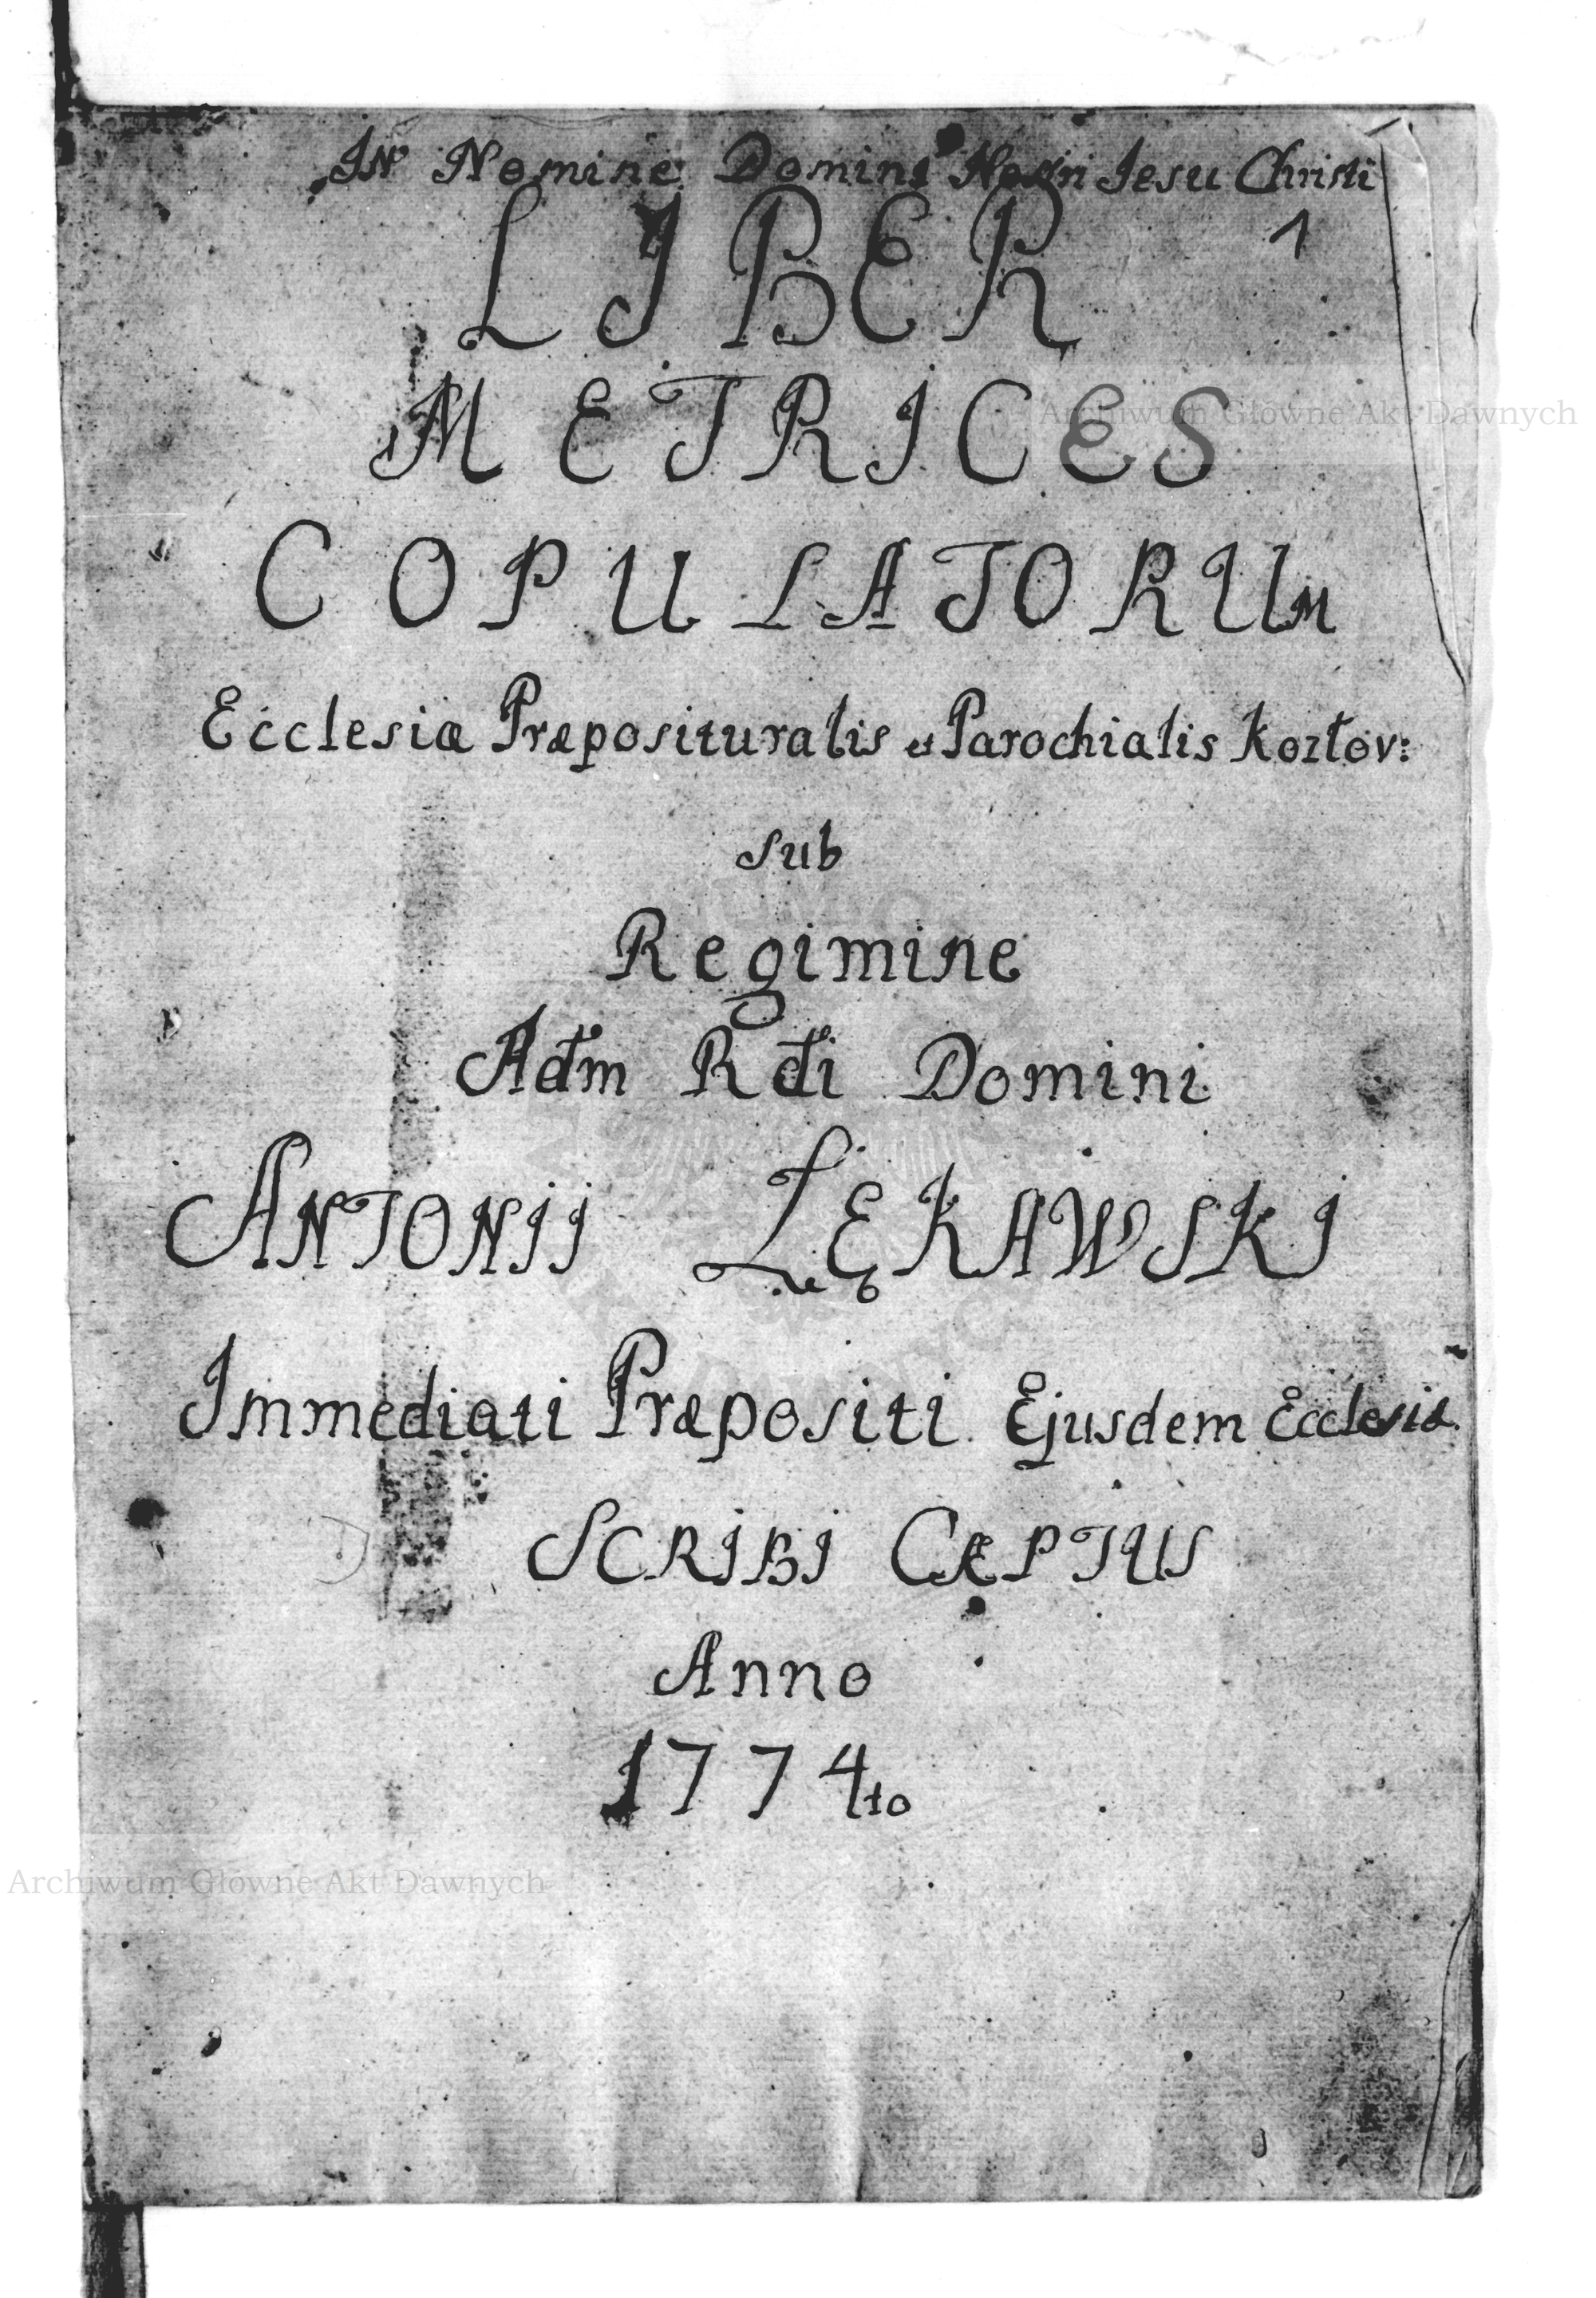 In Nomine Domini Nostri Jesu Christi
1
LIBER
METRICES
Archiwum Główne Akt Dawnych
COPULATORUM
Ecclesiæ Præposituralis et Parochialis Kozłov:
sub
Regimine
Adm Rdi Domini
ANTONII ŁĘKAWSKI
Immediati Præpositi Ejusdem Ecclesiæ
SCRIBI CÆPTUS
Anno
1774to
Archiwum Główne Akt Dawnych